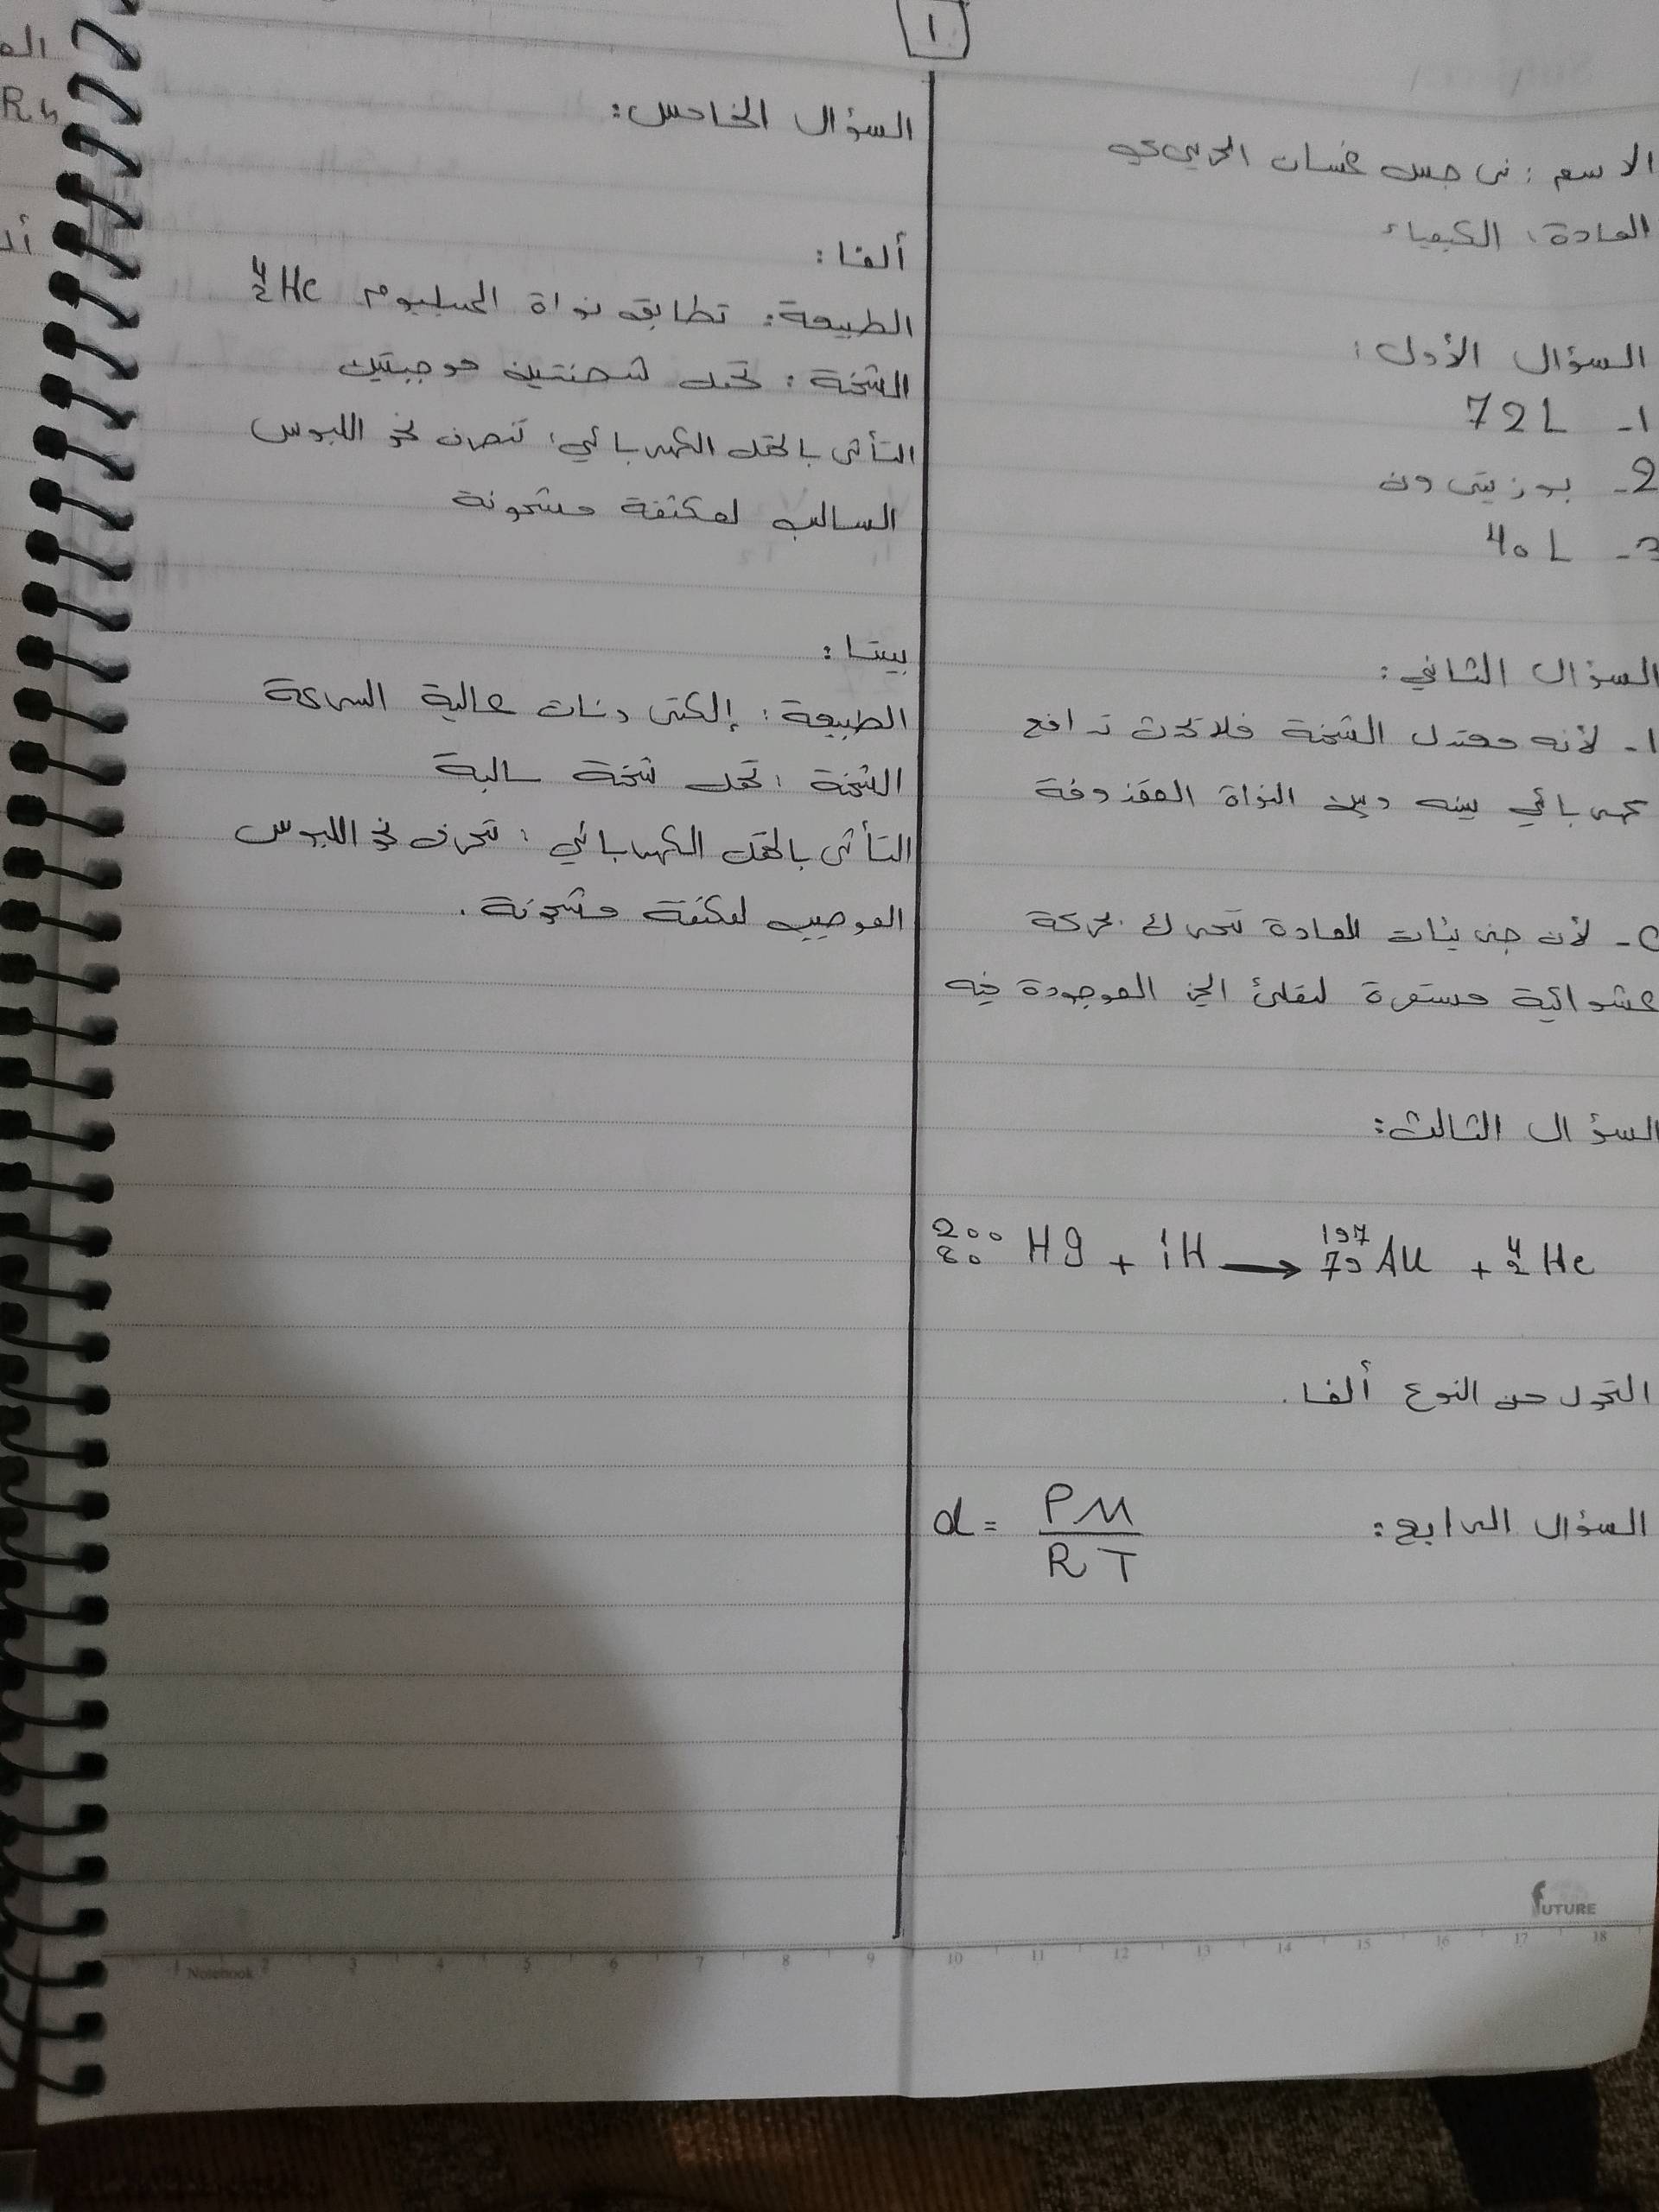 1
الاسم : نرجس غسان الحريري
المادة : الكيمياء
السؤال الأول :
1- 72L
2- بوزيترون
3- 40L
السؤال الثاني :
1- لأنه معتدل الشحنة فلا تحدث تدافع
كهربائي بينه وبين النواة المقذوفة
2- لأن جزيئات المادة تتحرك بحركة
عشوائية مستمرة لتملئ الحيز الموجودة فيه
السؤال الثالث :
²⁰⁰₈₀Hg + ¹₁H → ¹⁹⁷₇₉Au + ⁴₂He
التحول من النوع ألفا .
السؤال الرابع : d = PM / RT
السؤال الخامس :
ألفا :
الطبيعة : تطابق نواة الهيليوم ⁴₂He
الشحنة : تحمل شحنتين موجبتين
التأثر بالحقل الكهربائي : تنحرف نحو اللبوس
السالب لمكثفة مشحونة
بيتا :
الطبيعة : إلكترونات عالية السرعة
الشحنة : تحمل شحنة سالبة
التأثر بالحقل الكهربائي : تنحرف نحو اللبوس
الموجب لمكثفة مشحونة .
FUTURE
Notebook
1 2 3 4 5 6 7 8 9 10 11 12 13 14 15 16 17 18